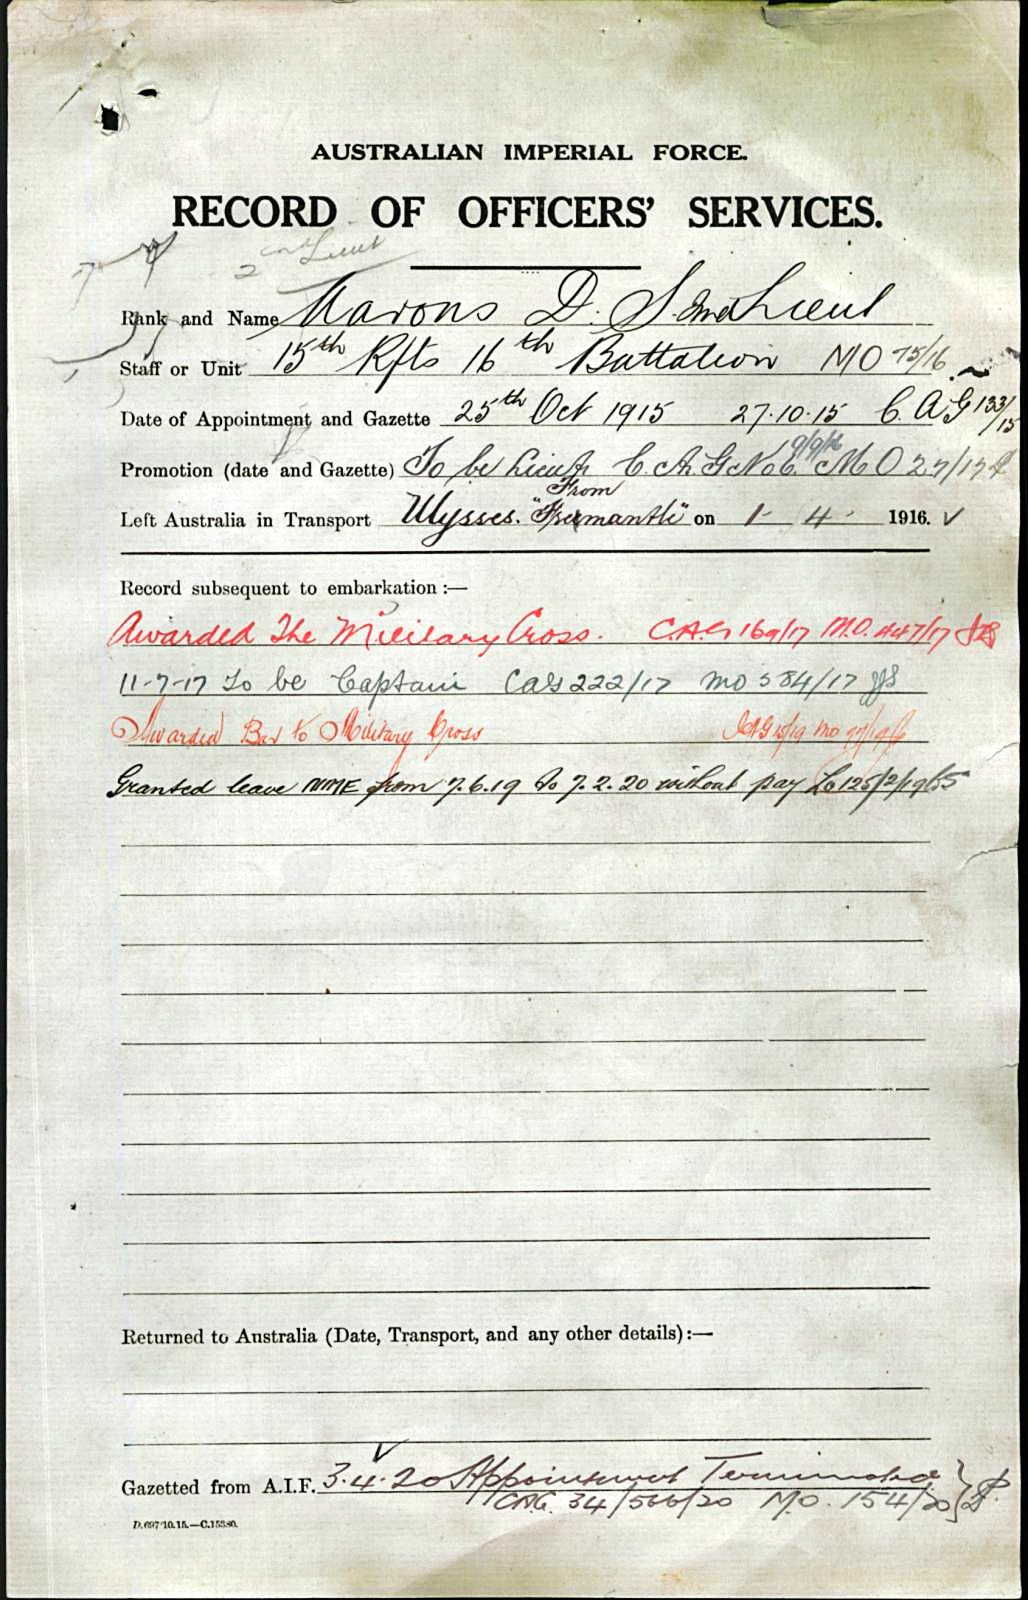 AUSTRALIAN IMPERIAL FORCE.
RECORD OF OFFICERS' SERVICES.
2nd Lieut
Rank and Name Aarons D. S. 2nd Lieut
Staff or Unit 15th Rfts 16th Battalion MO 75/16
Date of Appointment and Gazette 25th Oct 1915 27.10.15 C.A.G 133/15
9/9/16
Promotion (date and Gazette) To be Lieut C.A.G No 6. M O 27/17
From
Left Australia in Transport Ulysses. "Fremantle" on 1 - 4 - 1916. ✓
Record subsequent to embarkation :—
Awarded The Military Cross. C.A.G 169/17 M.O. 447/17
11-7-17 To be Captain CAG 222/17 MO 584/17
Awarded Bar to Military Cross CAG 15/19 MO 97/19
Granted leave NMME from 7.6.19 to 7.2.20 without pay Lo 125/2/1965
Returned to Australia (Date, Transport, and any other details) :—
Gazetted from A.I.F. 3.4.20 Appointment Terminated
CAG. 34/566/20 M.O. 154/20
D.697/10.15.—C.15380.